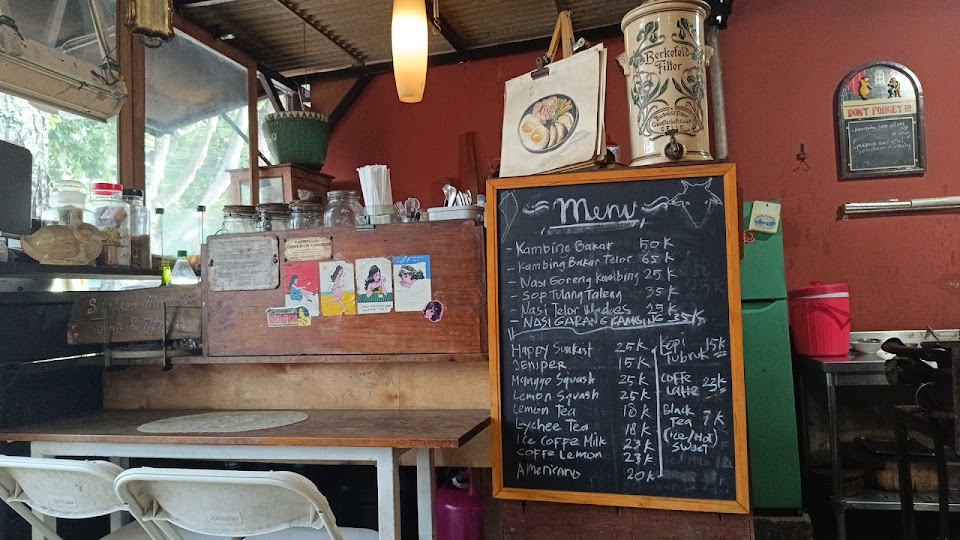 Berkefeld
Filter
DONT FORGET
Menu
- Kambing Bakar 50K
- Kambing Bakar Telor 65K
- Nasi Goreng Kambing 25K
- Sop Tulang Taleng 35K
- Nasi Telor 25K
- NASI GARANG KAMBING 35K
Happy Sunkist 25K
Jeniper 15K
Manggo Squash 25K
Lemon Squash 25K
Lemon Tea 18K
Lychee Tea 18K
Ice Coffe Milk 23K
Coffe Lemon 23K
Americano 20K
Kopi 15K
Tubruk
Coffe 23K
Latte
Black 7K
Tea
(ice/Hot)
Sweet